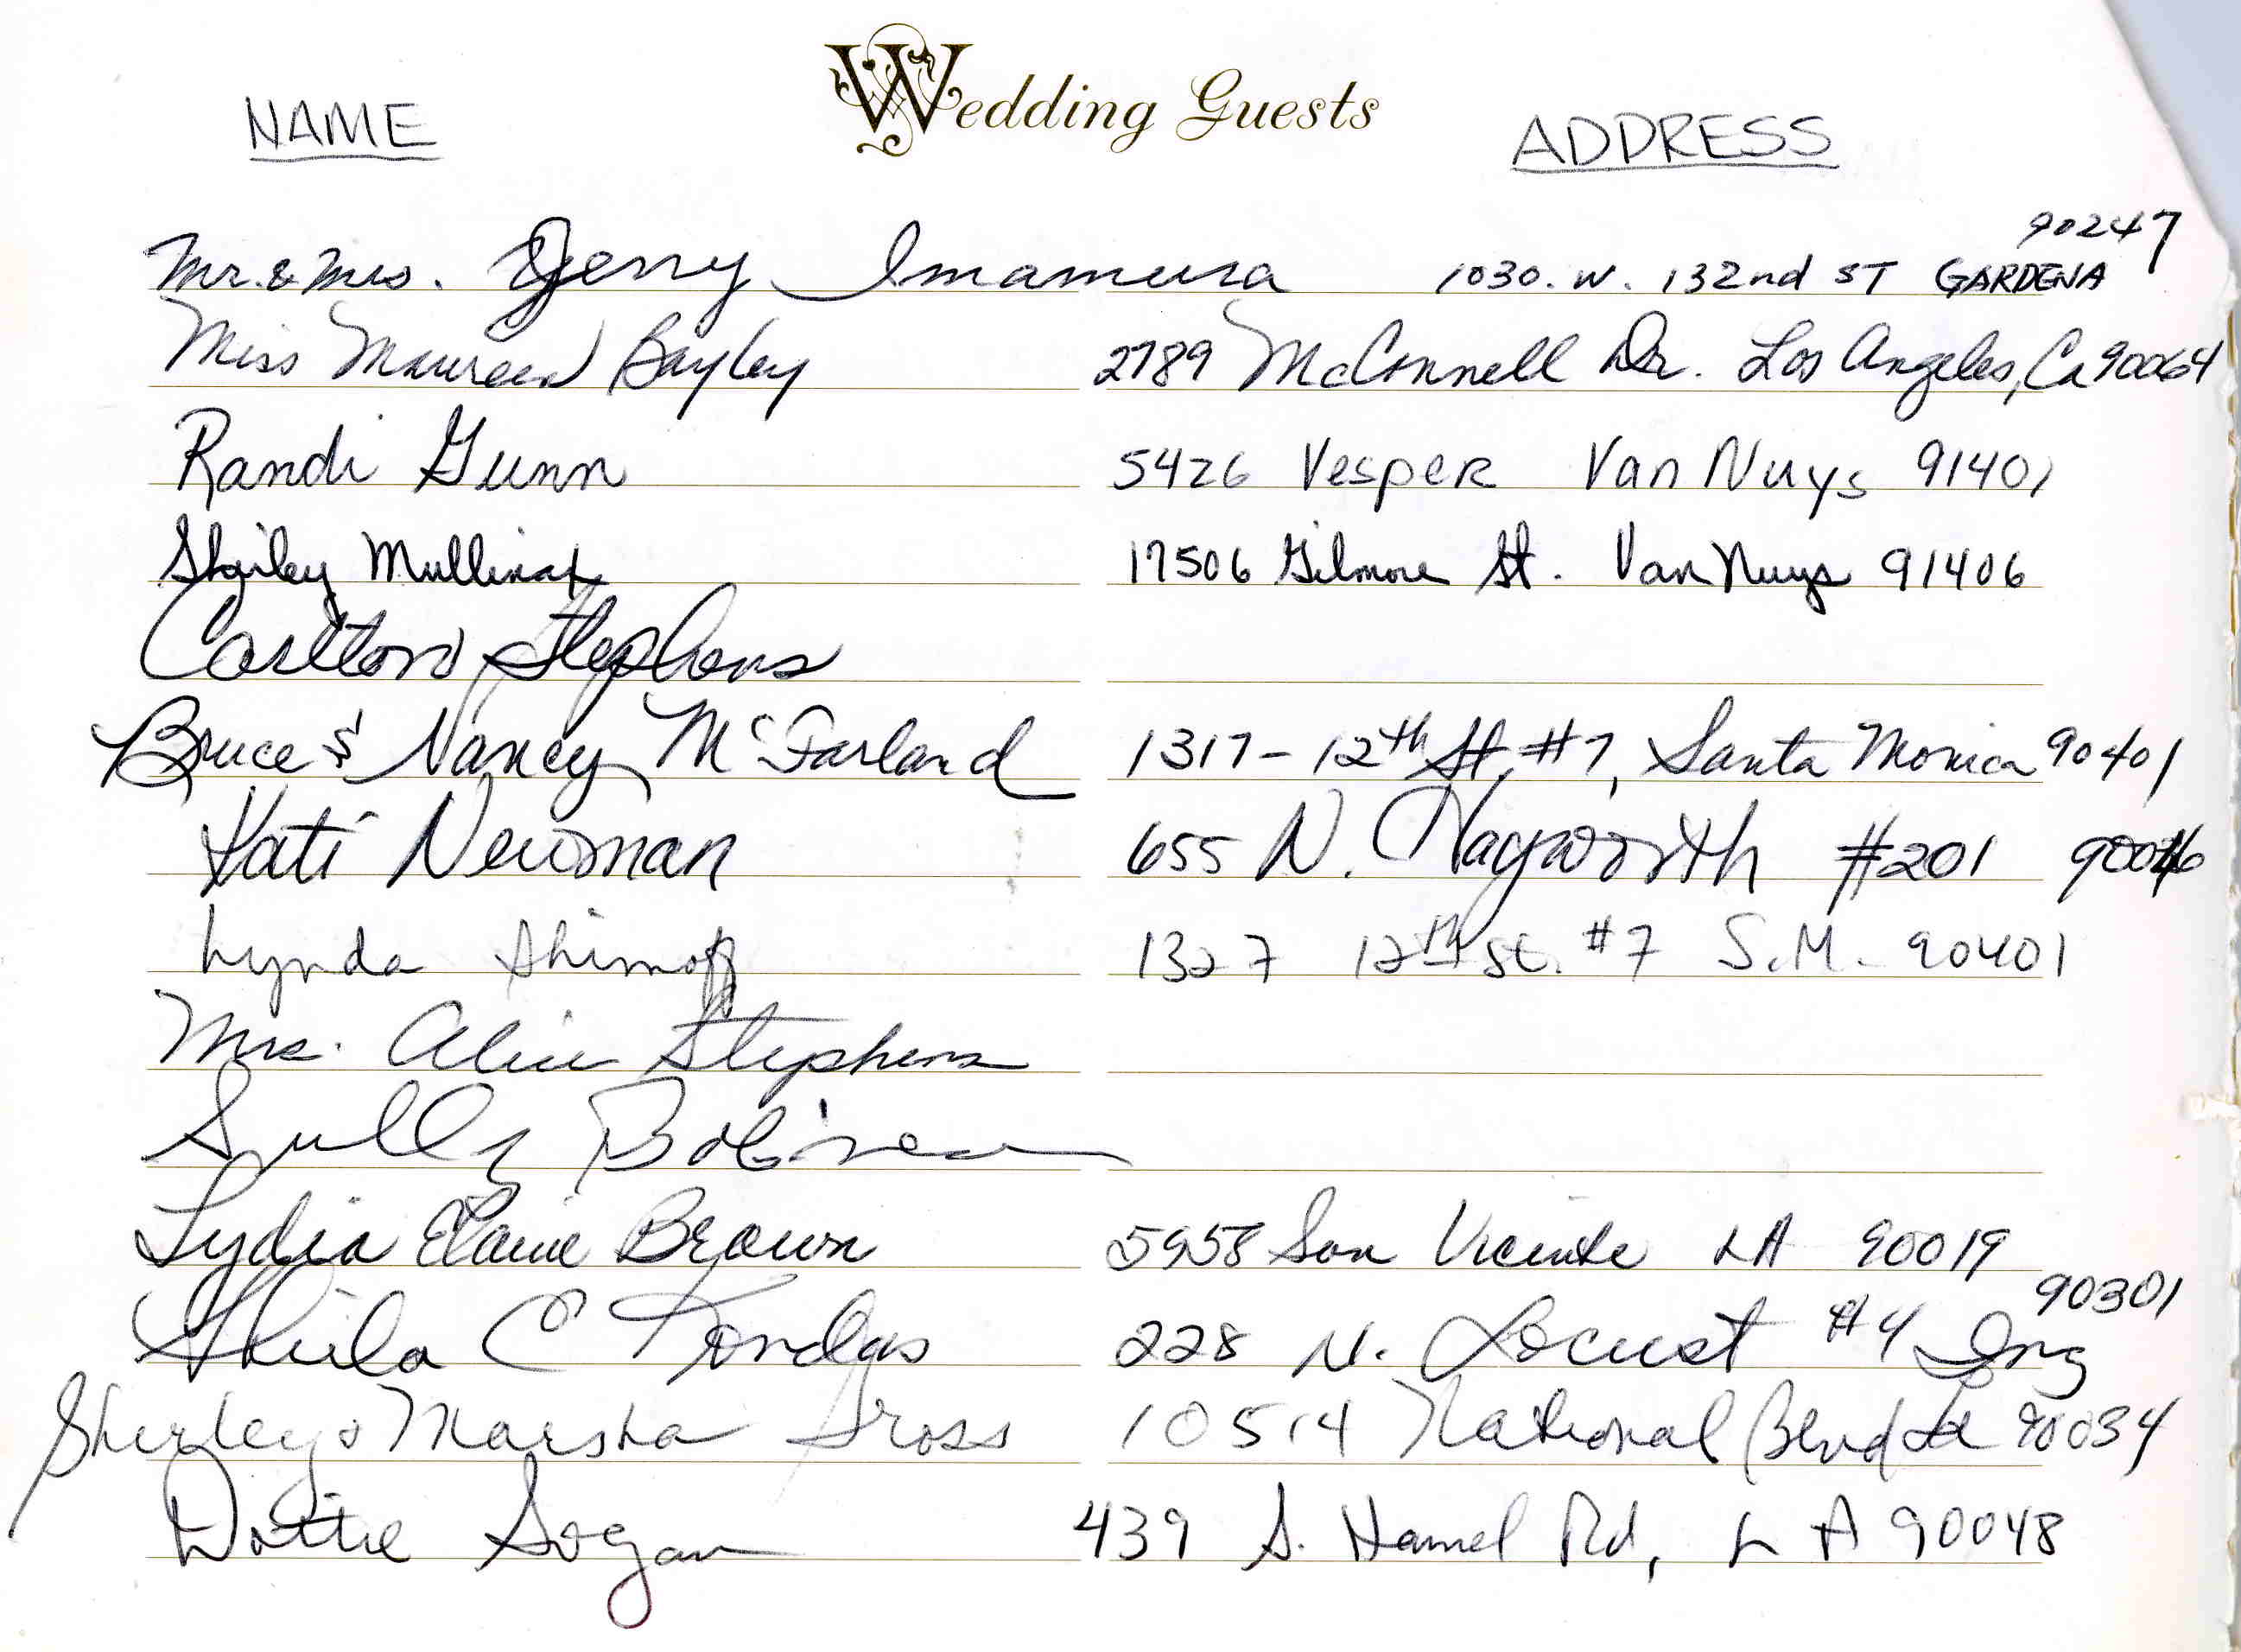 Wedding Guests
NAME ADDRESS
90247
Mr. & Mrs. Jerry Imamura 1030. W. 132nd ST GARDENA
Miss Maureen Bayley 2789 McConnell Dr. Los Angeles, Ca 90064
Randi Gunn 5426 Vesper Van Nuys 91401
Shirley Mullinax 17506 Gilmore St. Van Nuys 91406
Carlton Stephens
Bruce & Nancy McFarland 1317-12th St. #7, Santa Monica 90401
Kati Newman 655 N. Hayworth #201 90046
Lynda Shimoff 1327 12th St. #7 S.M. 90401
Mrs. Alice Stephens
Sully
Lydia Elaine Brown 5958 San Vicente LA 90019
90301
Sheila C 228 N. Locust #4 Ing
Shirley & Marsha Gross 10514 National Blvd LA 90034
Dottie Sogan 439 S. Hamel Rd, LA 90048